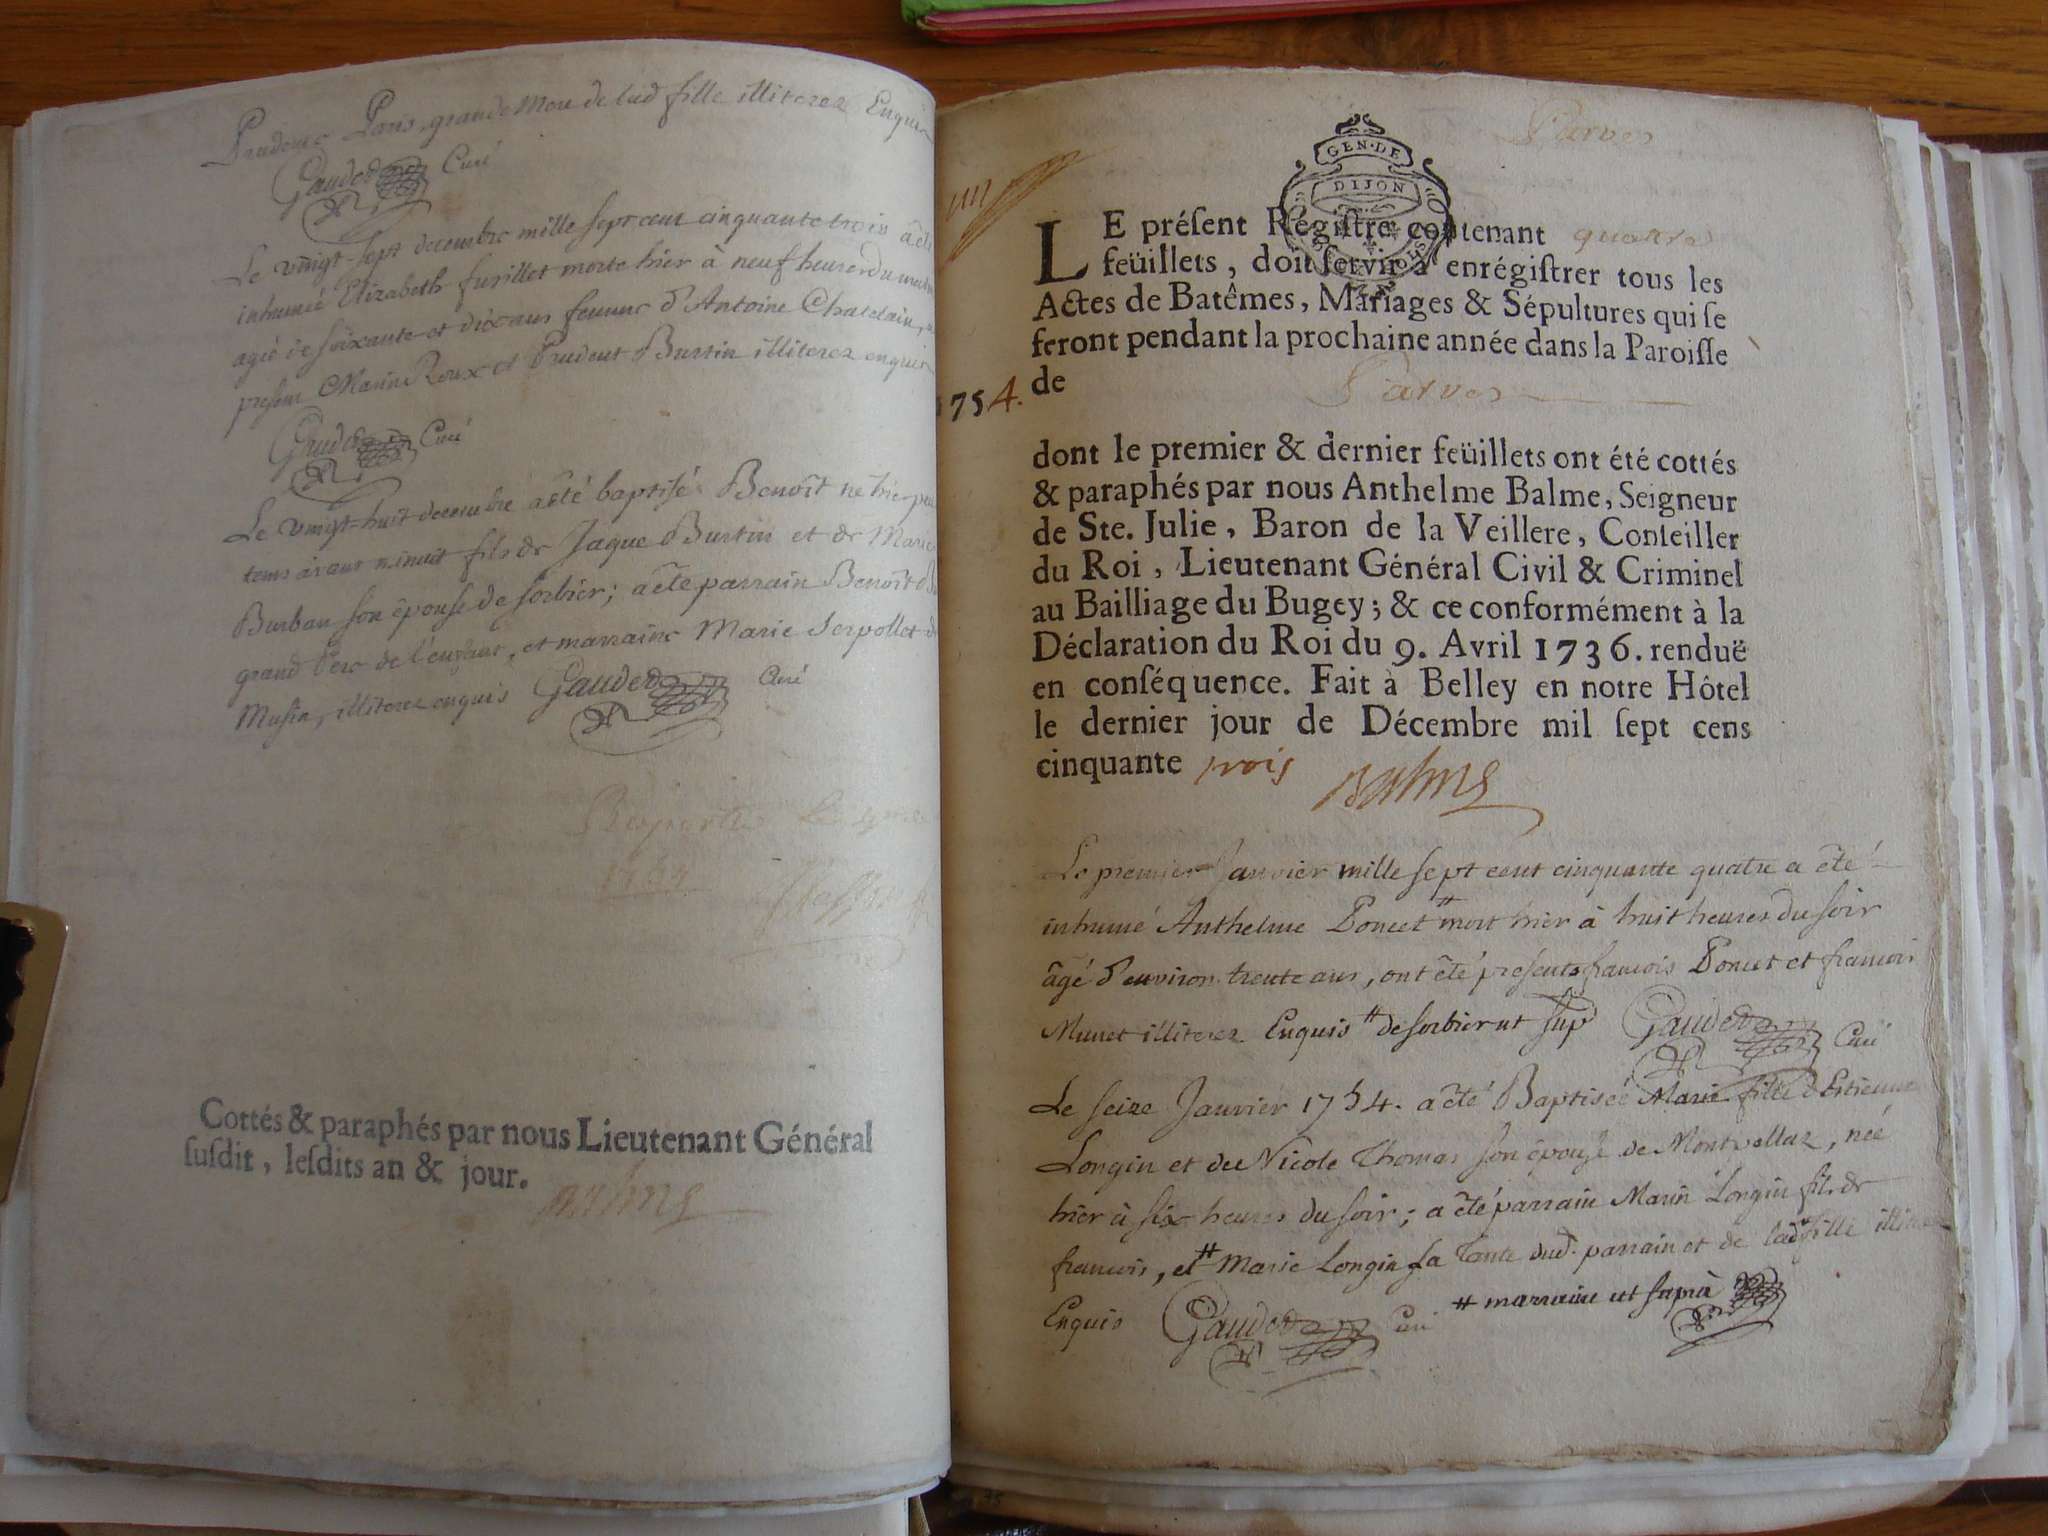 Prudence Paris, grande Mere de lad fille illiterez Enquis
Gauded Curé
Le vingt-sept decembre mille sept cent cinquante trois a été
inhumée Elizabeth furillet morte hier à neuf heures du matin
agée de soixante et dix ans femme d'Antoine Chatelain,
presens Marin Roux et Prudent Burtin illiterez enquis
Gauded Curé
Le vingt-huit decembre a été baptisé Benoît né hier
tems avant minuit fils de Jaque Burtin et de Marie
Burban son épouse de sorbier; a été parrain Benoît
grand Pere de l'enfant, et marraine Marie Serpollet
Musin, illiterez enquis Gauded Curé
Cottés & paraphés par nous Lieutenant Général
ſuſdit, leſdits an & jour.
Balme
Parves
GEN·DE
DIJON
LE préſent Régiſtre contenant quatre
feüillets, doit ſervir à enrégiſtrer tous les
Actes de Batêmes, Mariages & Sépultures qui ſe
feront pendant la prochaine année dans la Paroiſſe
de Parves
1754.
dont le premier & dernier feüillets ont été cottés
& paraphés par nous Anthelme Balme, Seigneur
de Ste. Julie, Baron de la Veillere, Conſeiller
du Roi, Lieutenant Général Civil & Criminel
au Bailliage du Bugey; & ce conformément à la
Déclaration du Roi du 9. Avril 1736. renduë
en conſéquence. Fait à Belley en notre Hôtel
le dernier jour de Décembre mil ſept cens
cinquante trois Balme
Le premier Janvier mille sept cent cinquante quatre a été
inhumé Anthelme Poncet # mort hier à huit heures du soir
âgé d'environ trente ans, ont été presents francois Poncet et francois
Munet illiterez Enquis # de sorbier ut sup Gauded Curé
Le seize Janvier 1754. a été Baptisée Marie fille d'Estienne
Longin et de Nicole Thomas son épouse de Montvellaz, née
hier à six heures du soir; a été parrain Marin Longin fils de
francois, et # Marie Longin sa Tante dud. parrain et de lad fille
Enquis Gauded Curé # marraine ut suprà